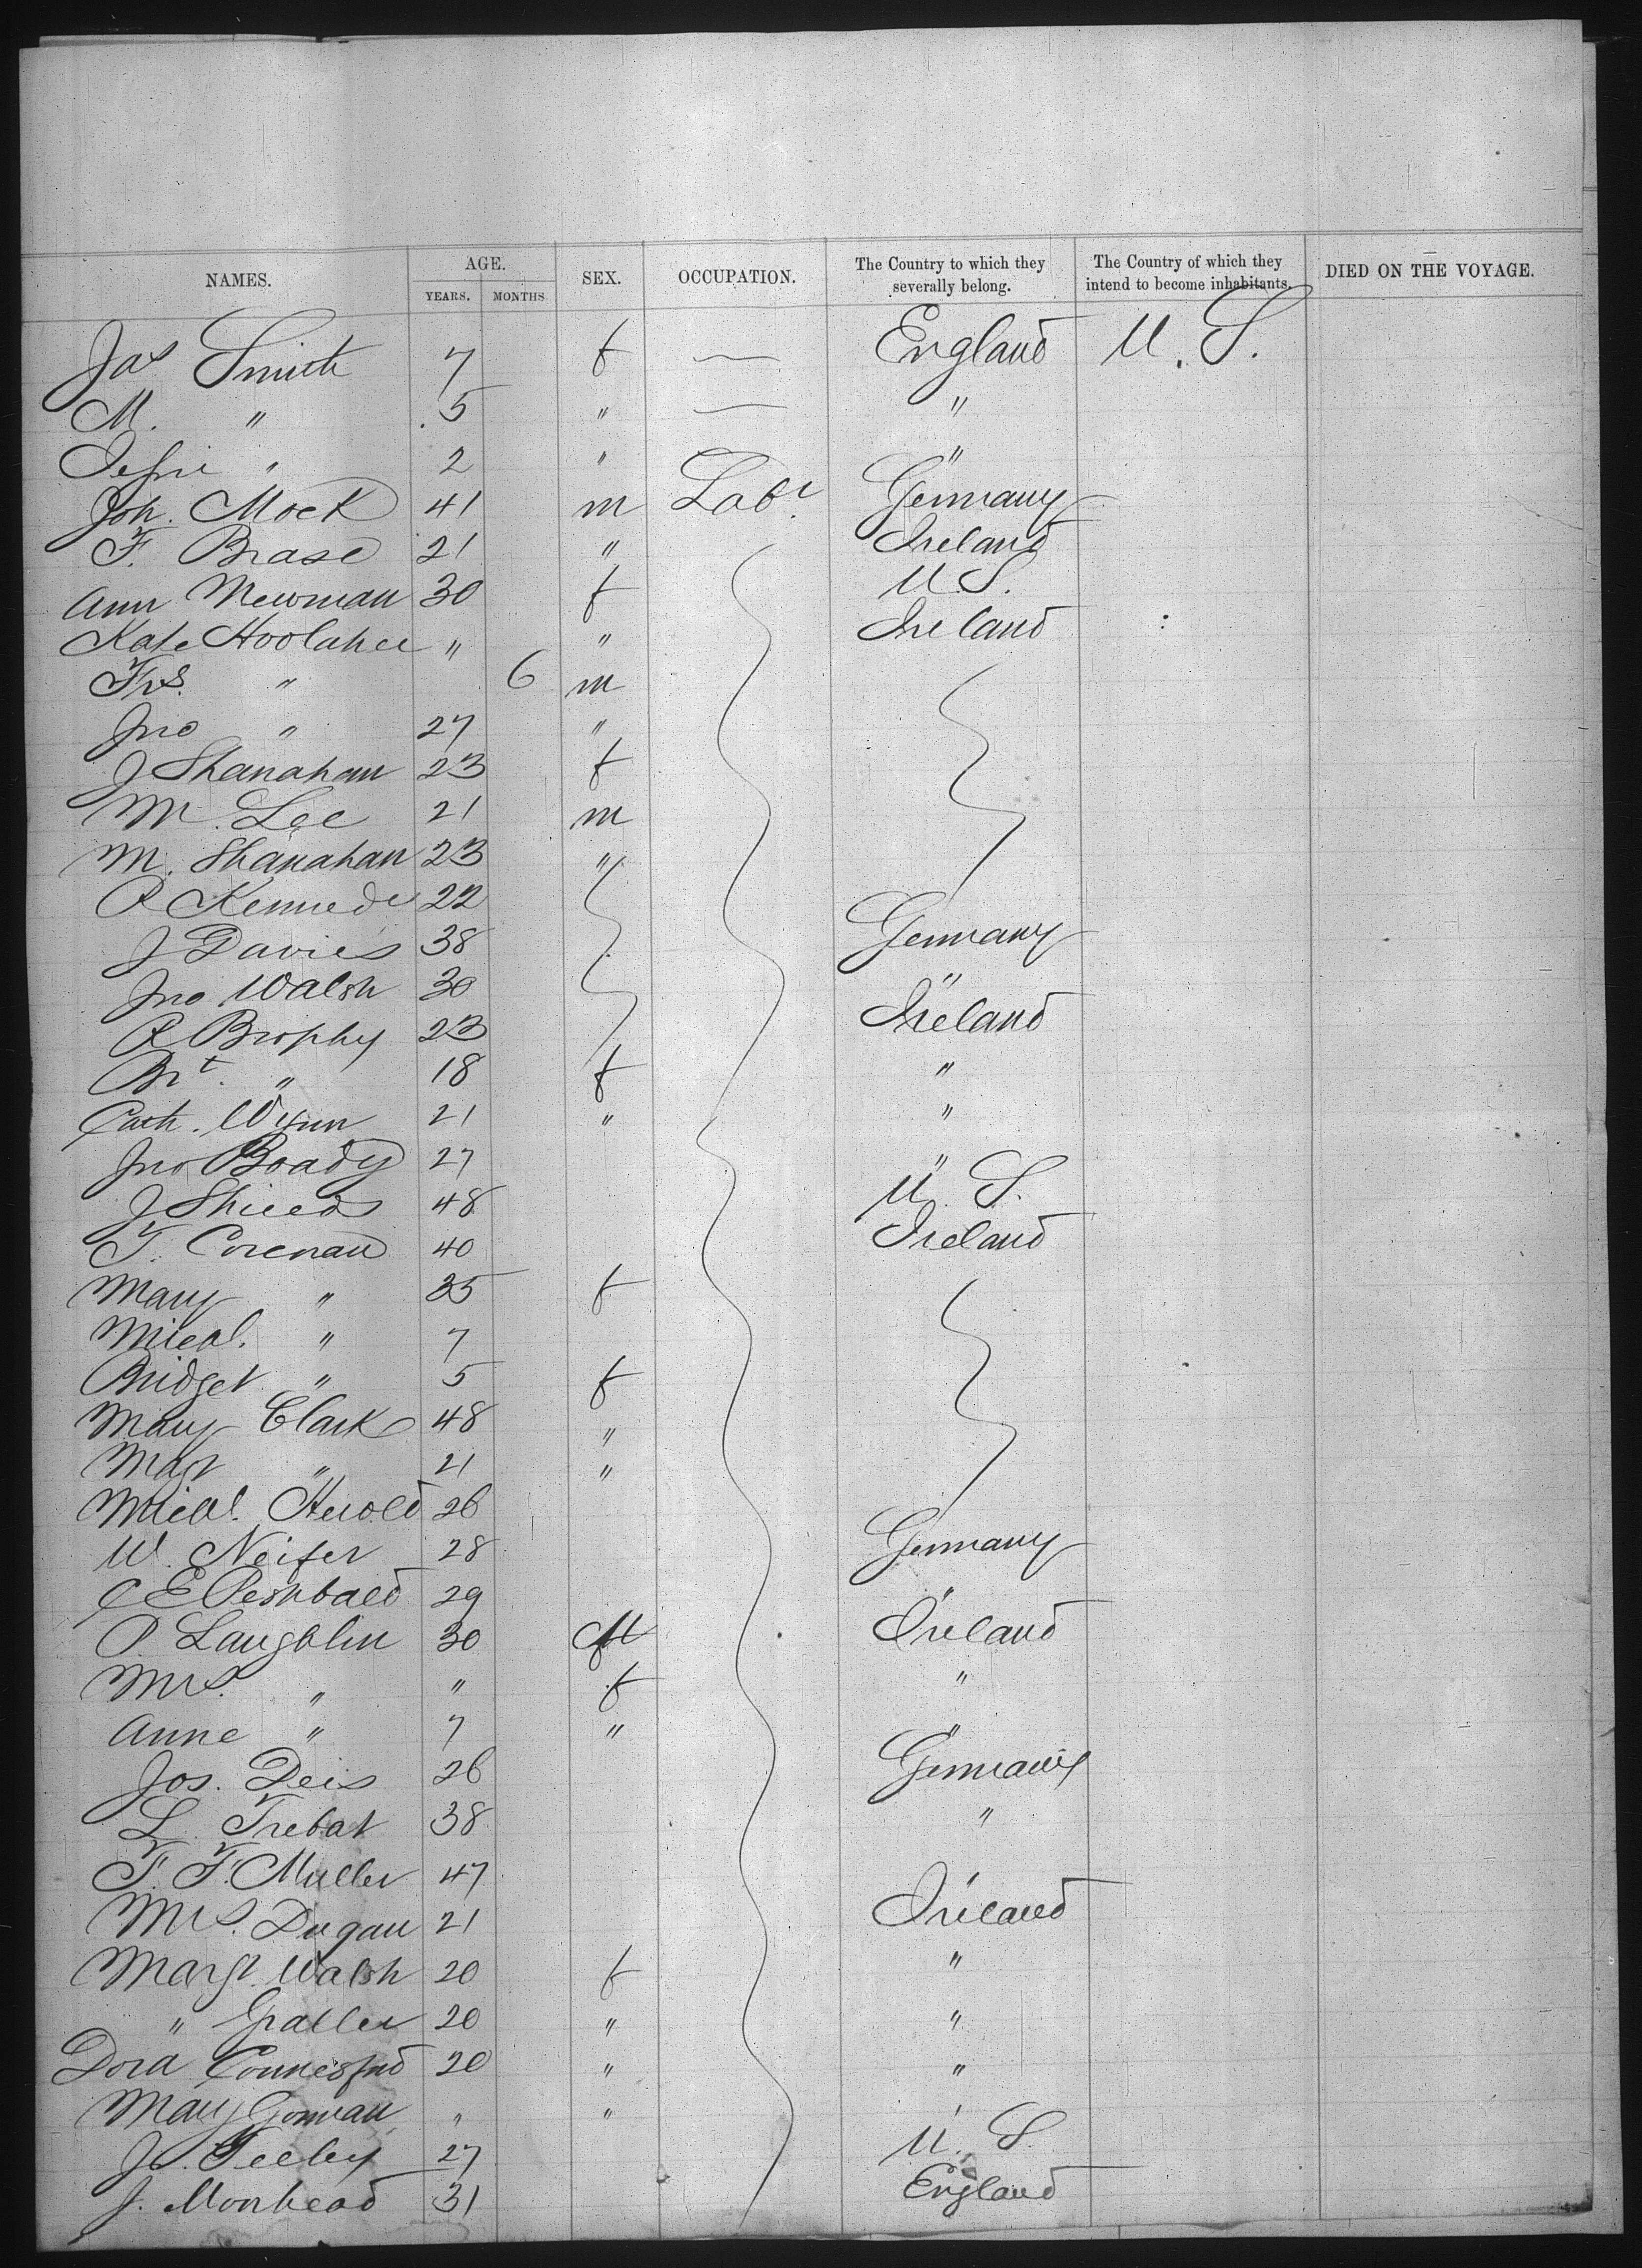 NAMES. AGE. SEX. OCCUPATION. The Country to which they severally belong. The Country of which they intend to become inhabitants. DIED ON THE VOYAGE.
YEARS. MONTHS
Jas Smith 7 f — England U. S.
M. " 5 " — "
" 2 " "
Joh. Mock 41 m Labr. Germany
F. Brase 21 " Ireland
Ann Newman 30 f U S.
Kate Hoolahee " " Ireland
Frs. " 6 m
Jno " 27 "
J Shanahan 23 f
M. Lee 21 m
M. Shanahan 23 "
P Kennede 22
J Davies 38 Germany
Jno Walsh 30 "
P Brophy 23 Ireland
Brt. " 18 f "
Cath. Wynn 21 " "
Jno Boady 27 "
J Shields 48 U. S.
T. Corenan 40 Ireland
Mary " 35 f
Mical. " 7
Bridget " 5 f
Mary Clark 48 "
Magt " 21 "
Mical. Herold 26
W. Neifer 28 Germany
C E Peshbald 29 "
P. Laughlin 30 M Ireland
Mrs. " " f "
Anne " 7 " "
Jos. Deis 26 Germany
L. Trebat 38 "
T. F. Muller 47 "
Mrs. Dugan 21 Ireland
Margt. Walsh 20 f "
" 20 " "
Dora 20 " "
Mary Gorman " " "
J. Feeley 27 U. S.
J. Moorhead 31 England